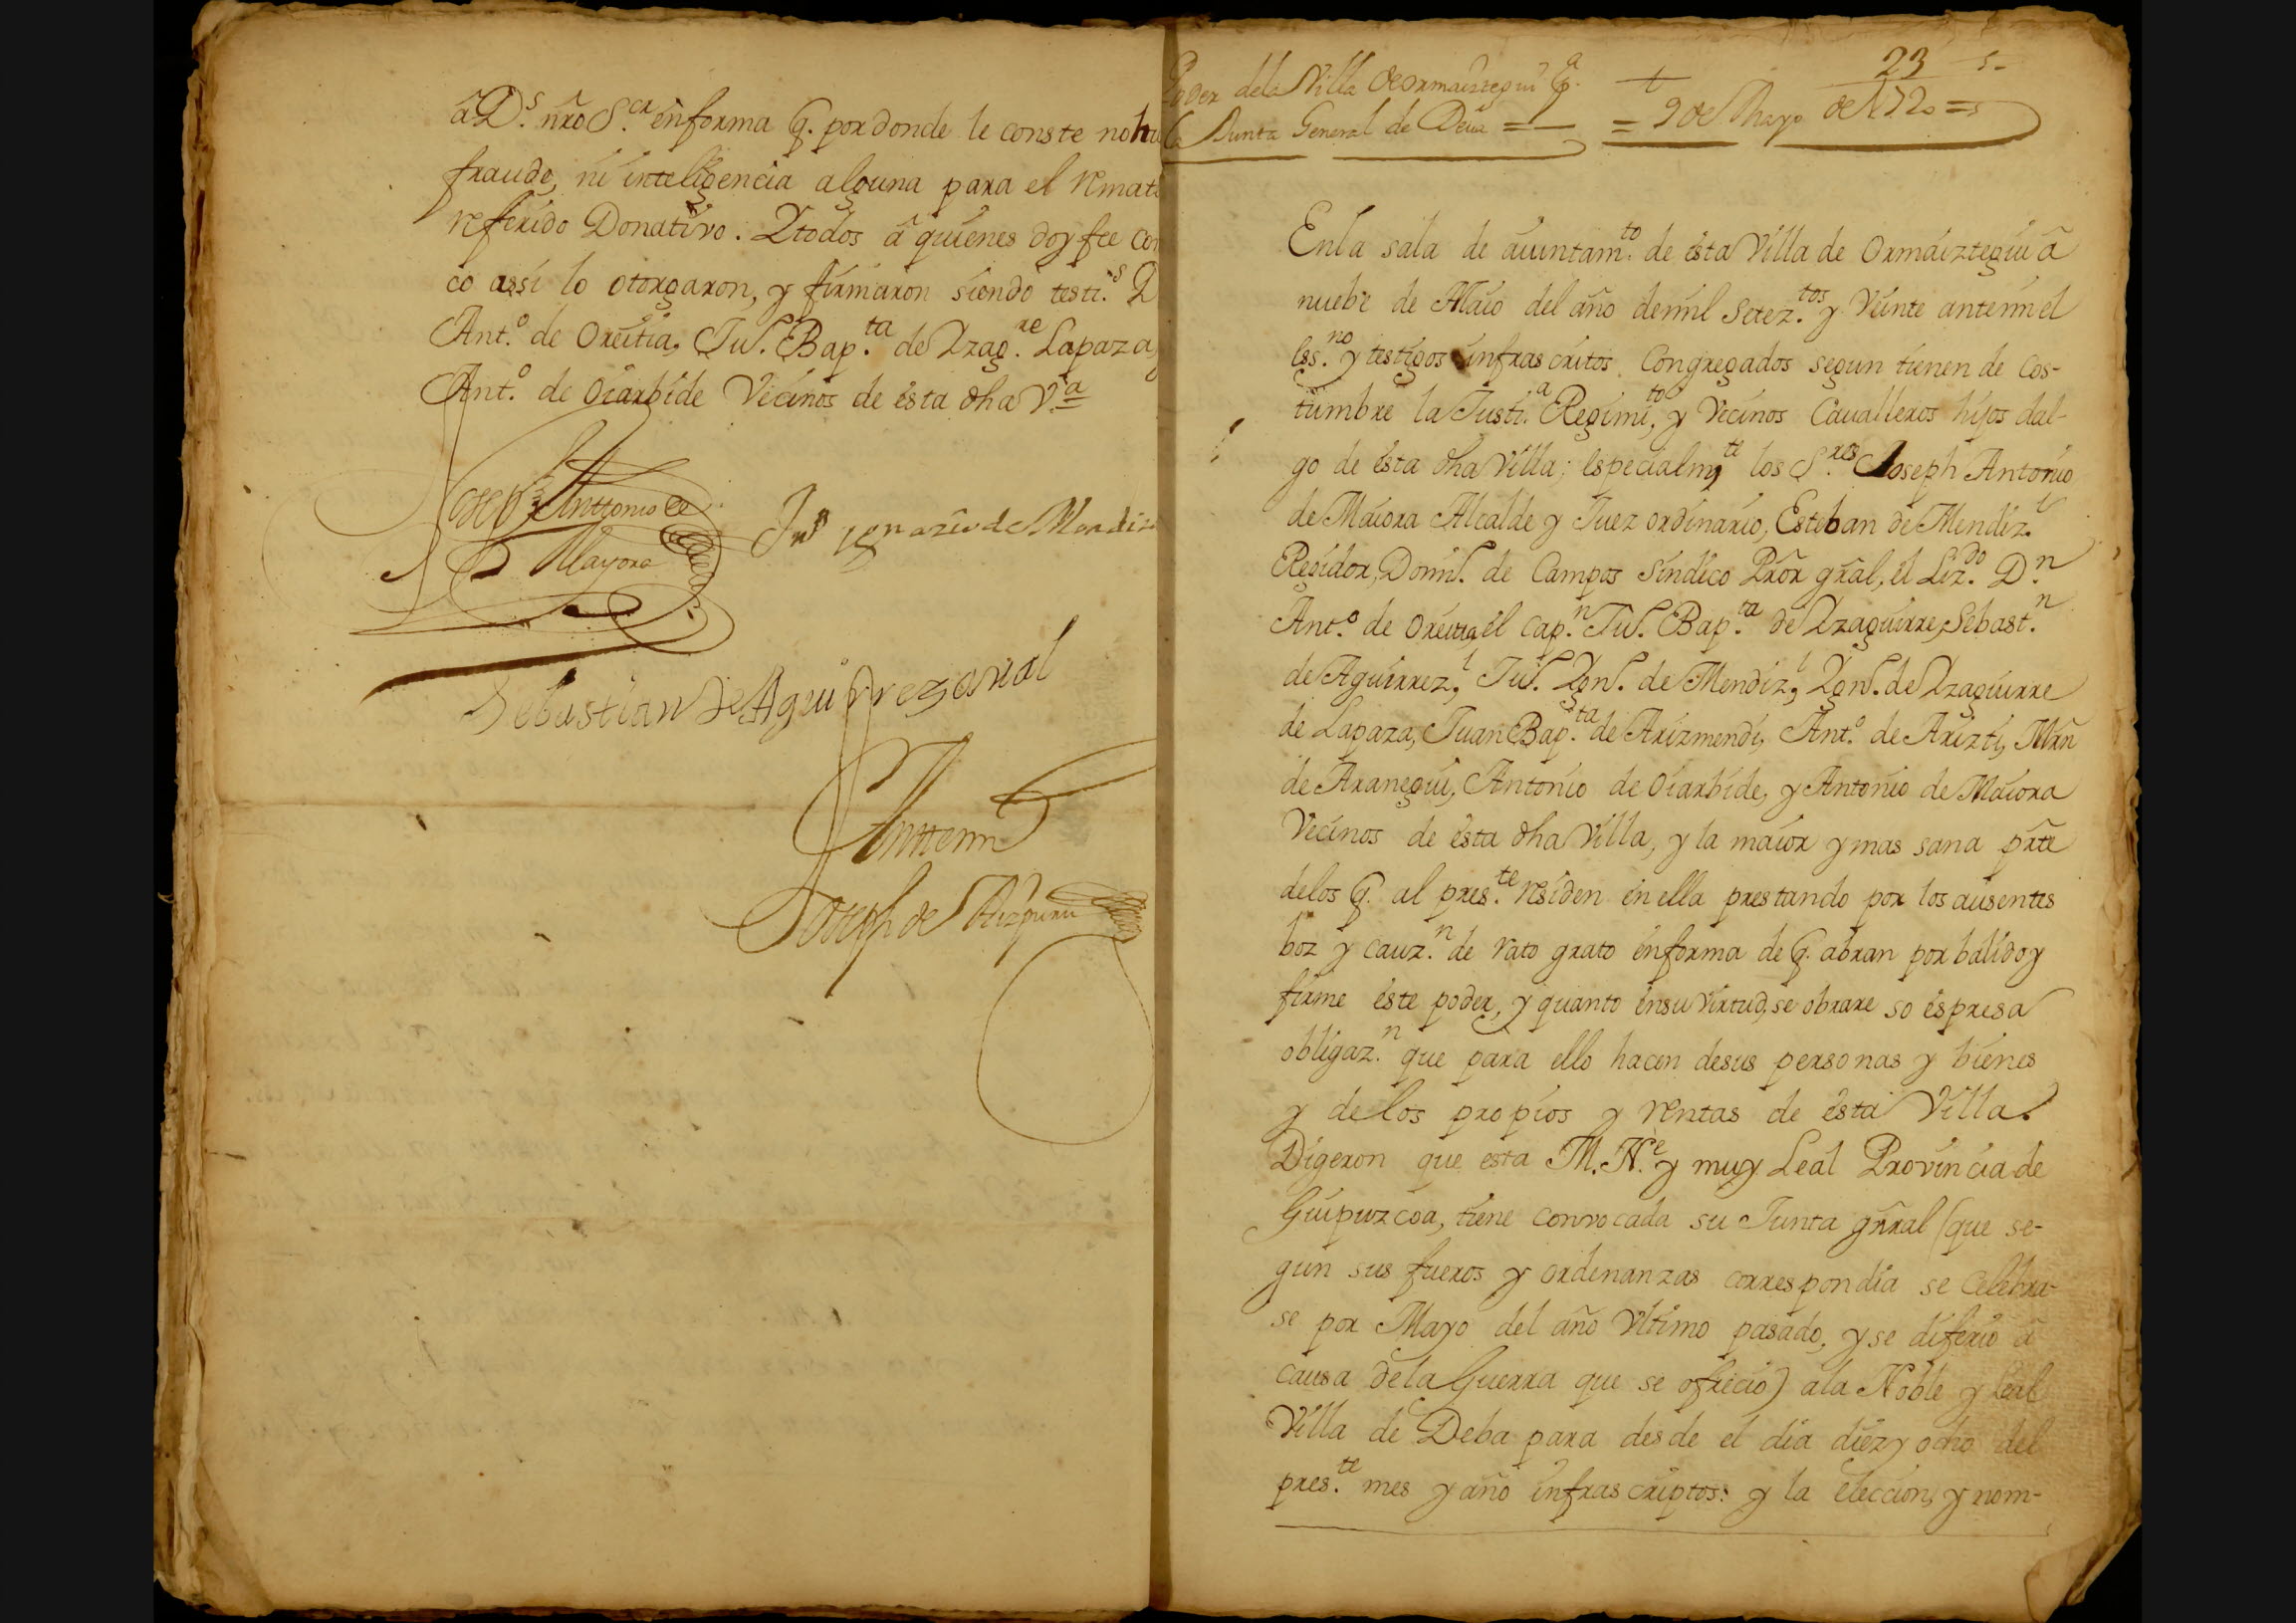 â D.s nr̃o S.or en forma q. por donde le conste no hu
fraude, ni inteligencia alguna para el remate
referido Donativo. Y todos â quienes doy fee cono
co assi lo otorgaron, y firmaron siendo testi.s D
Ant.o de Oreitia, Ju.º Bap.ta de Yzag.re Lapaza,
Ant.o de Oiarbide Vecinos de esta dha V.a
Joseph Anttonio de
Mayora
Ju.º Ygnazio de Mendiz
Sebastian de Aguirrezaval
Antte mi
Joseph de Aizpuru
Poder dela Villa de Ormaiztegui p.a
la Junta General de Deva =
= 9 de Mayo de 1720 =
23
En la sala de aiuntam.to de esta Villa de Ormaiztegui â
nuebe de Maio del año de mil setez.tos y Veinte ante mi el
ess.no y testigos infrascritos Congregados segun tienen de cos-
tumbre la Justi.a Regimi.to y Vecinos Cavalleros hijos dal-
go de esta dha Villa; especialm.te los S.res Joseph Antonio
de Maiora Alcalde y Juez ordinario, Esteban de Mendiz.l
Regidor, Domi.º de Campos Sindico Pror gr̃al, el Liz.do D.n
Ant.o de Oreitia, el Cap.n Ju.º Bap.ta de Yzaguirre, Sebast.n
de Aguirrez.l, Ju.º Ygn.º de Mendiz.l, Ygn.º de Yzaguirre
de Lapaza, Juan Bap.ta de Arizmendi, Ant.o de Arizti, Mr̃n
de Aranegui, Antonio de Oiarbide, y Antonio de Maiora
Vecinos de esta dha Villa, y la maior y mas sana pr̃te
delos q. al pres.te residen en ella prestando por los ausentes
boz y cauz.n de rato grato en forma de q. abran por balido y
firme este poder, y quanto en su virtud, se obrare so espresa
obligaz.n que para ello hacen de sus personas y bienes
y de los propios y rentas de esta Villa.
Digeron que esta M. N.e y muy Leal Provincia de
Guipuzcoa, tiene convocada su Junta gñral (que se-
gun sus fueros y ordenanzas correspondia se celebra-
se por Mayo del año Vltimo pasado, y se difirio â
causa dela Guerra que se ofrecio) ala Noble y leal
Villa de Deba para desde el dia diez y ocho del
pres.te mes y año infrascriptos: y la eleccion, y nom-